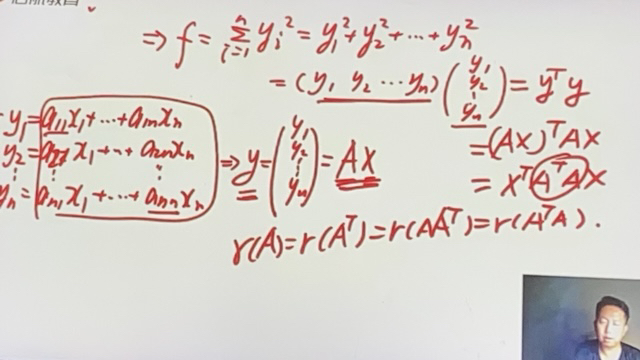 ⇒ f = Σ_{i=1}^{n} y_i² = y₁² + y₂² + ⋯ + y_n²
= (y₁ y₂ ⋯ y_n) (y₁ y₂ ⋮ y_n) = yᵀy
y₁ = a₁₁x₁ + ⋯ + a₁ₙxₙ
y₂ = a₂₁x₁ + ⋯ + a₂ₙxₙ
⋮
yₙ = aₙ₁x₁ + ⋯ + aₙₙxₙ
⇒ y = (y₁ y₂ ⋮ yₙ) = Ax
= (Ax)ᵀAx
= xᵀAᵀAx
r(A) = r(Aᵀ) = r(AAᵀ) = r(AᵀA).